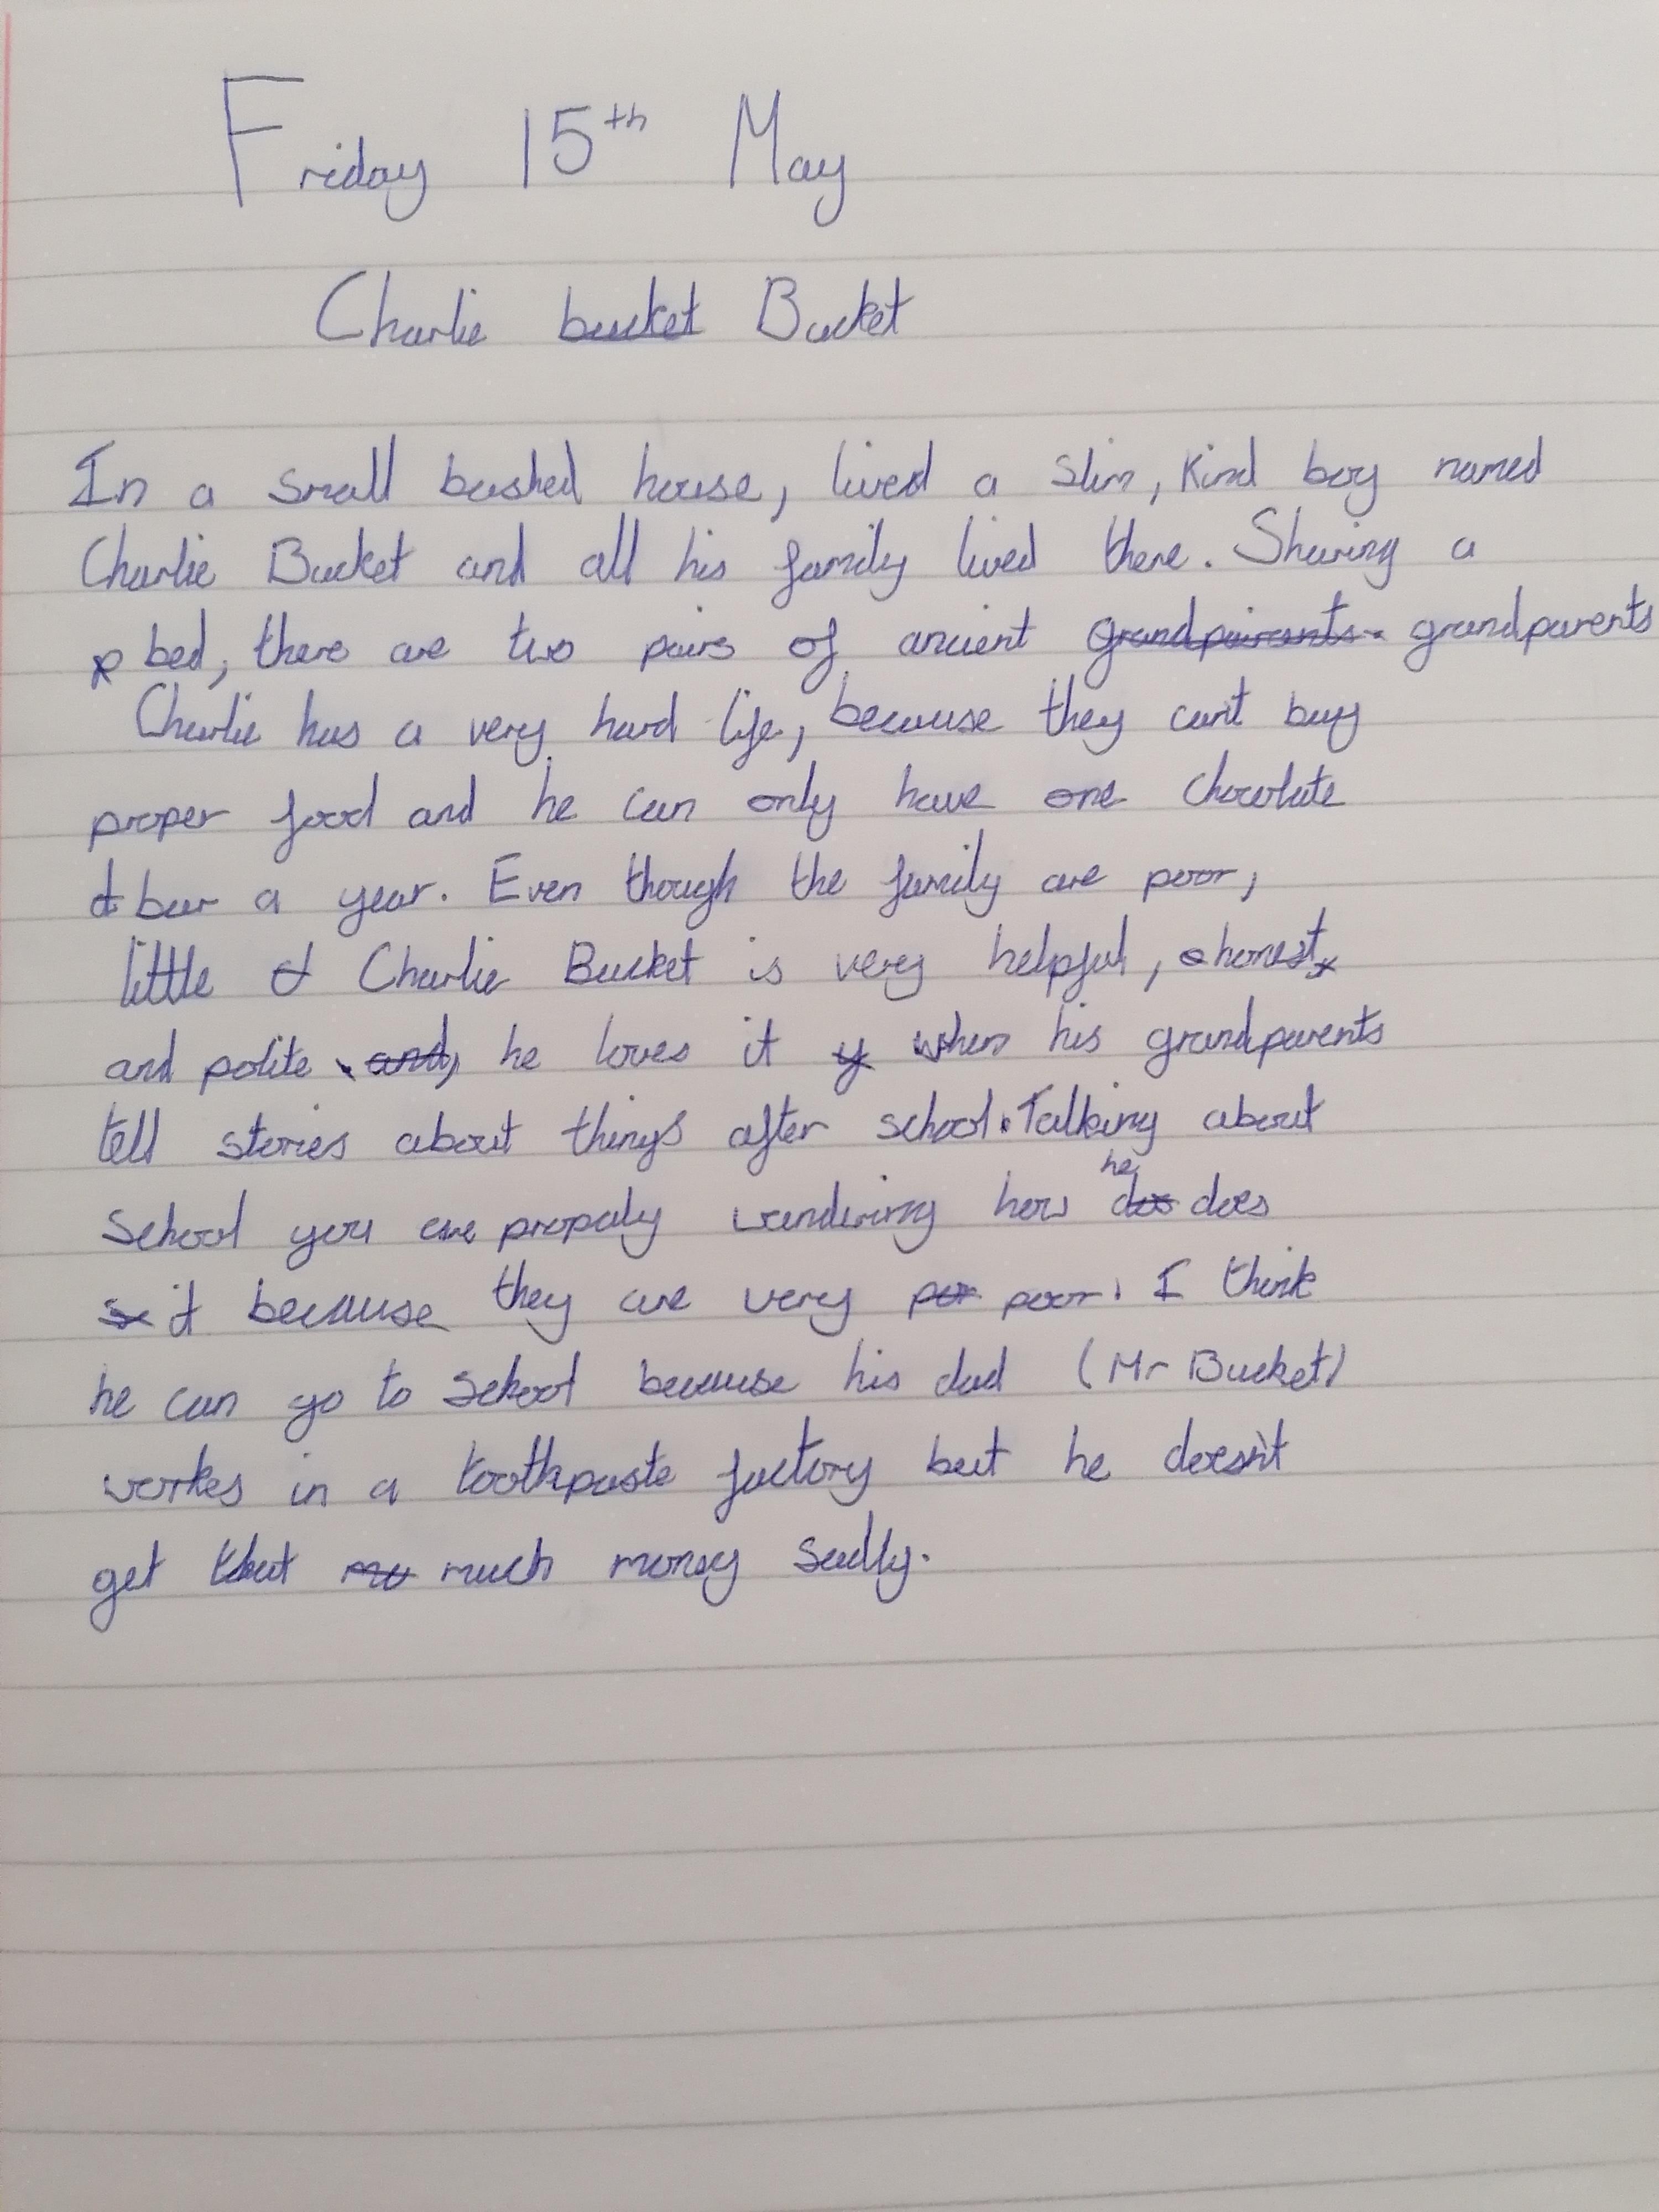 Friday 15th May
Charlie bucket Bucket
In a small bashed house, lived a slim, kind boy named
Charlie Bucket and all his family lived there. Sharing a
bed, there are two pairs of ancient grandpairents. grandparents
Charlie has a very hard life, because they can't buy
proper food and he can only have one chocolate
bar a year. Even though the family are poor,
little Charlie Bucket is very helpful, honest
and polite. and, he loves it when his grandparents
tell stories about things after school. Talking about
school you are propaly wandering how he does
it because they are very por poor. I think
he can go to school because his dad (Mr Bucket)
workes in a toothpaste factory but he doesn't
get that much money sadly.